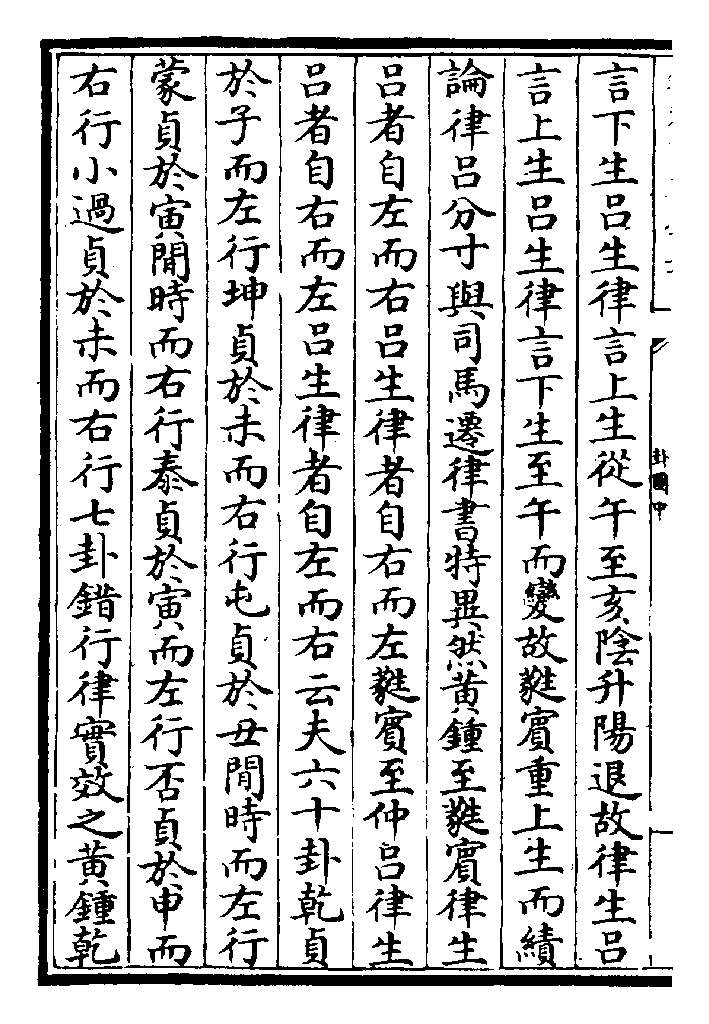 言下生呂生律言上生從午至亥陰升陽退故律生呂
言上生呂生律言下生至午而變故蕤賓重上生而績
論律呂分寸與司馬遷律書特異然黃鍾至蕤賓律生
呂者自左而右呂生律者自右而左蕤賓至仲呂律生
呂者自右而左呂生律者自左而右云夫六十卦乾貞
於子而左行坤貞於未而右行屯貞於丑閒時而左行
蒙貞於寅閒時而右行泰貞於寅而左行否貞於申而
右行小過貞於未而右行七卦錯行律實效之黃鍾乾
卦圖中